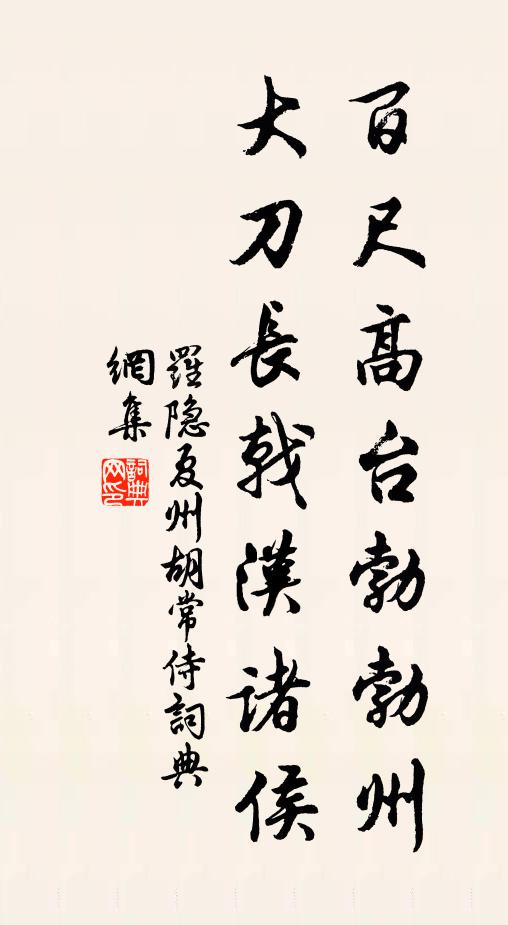 百尺高台勃勃州
大刀長戟漢諸侯
羅隐夏州胡常侍詞典
網集
詞典
网印